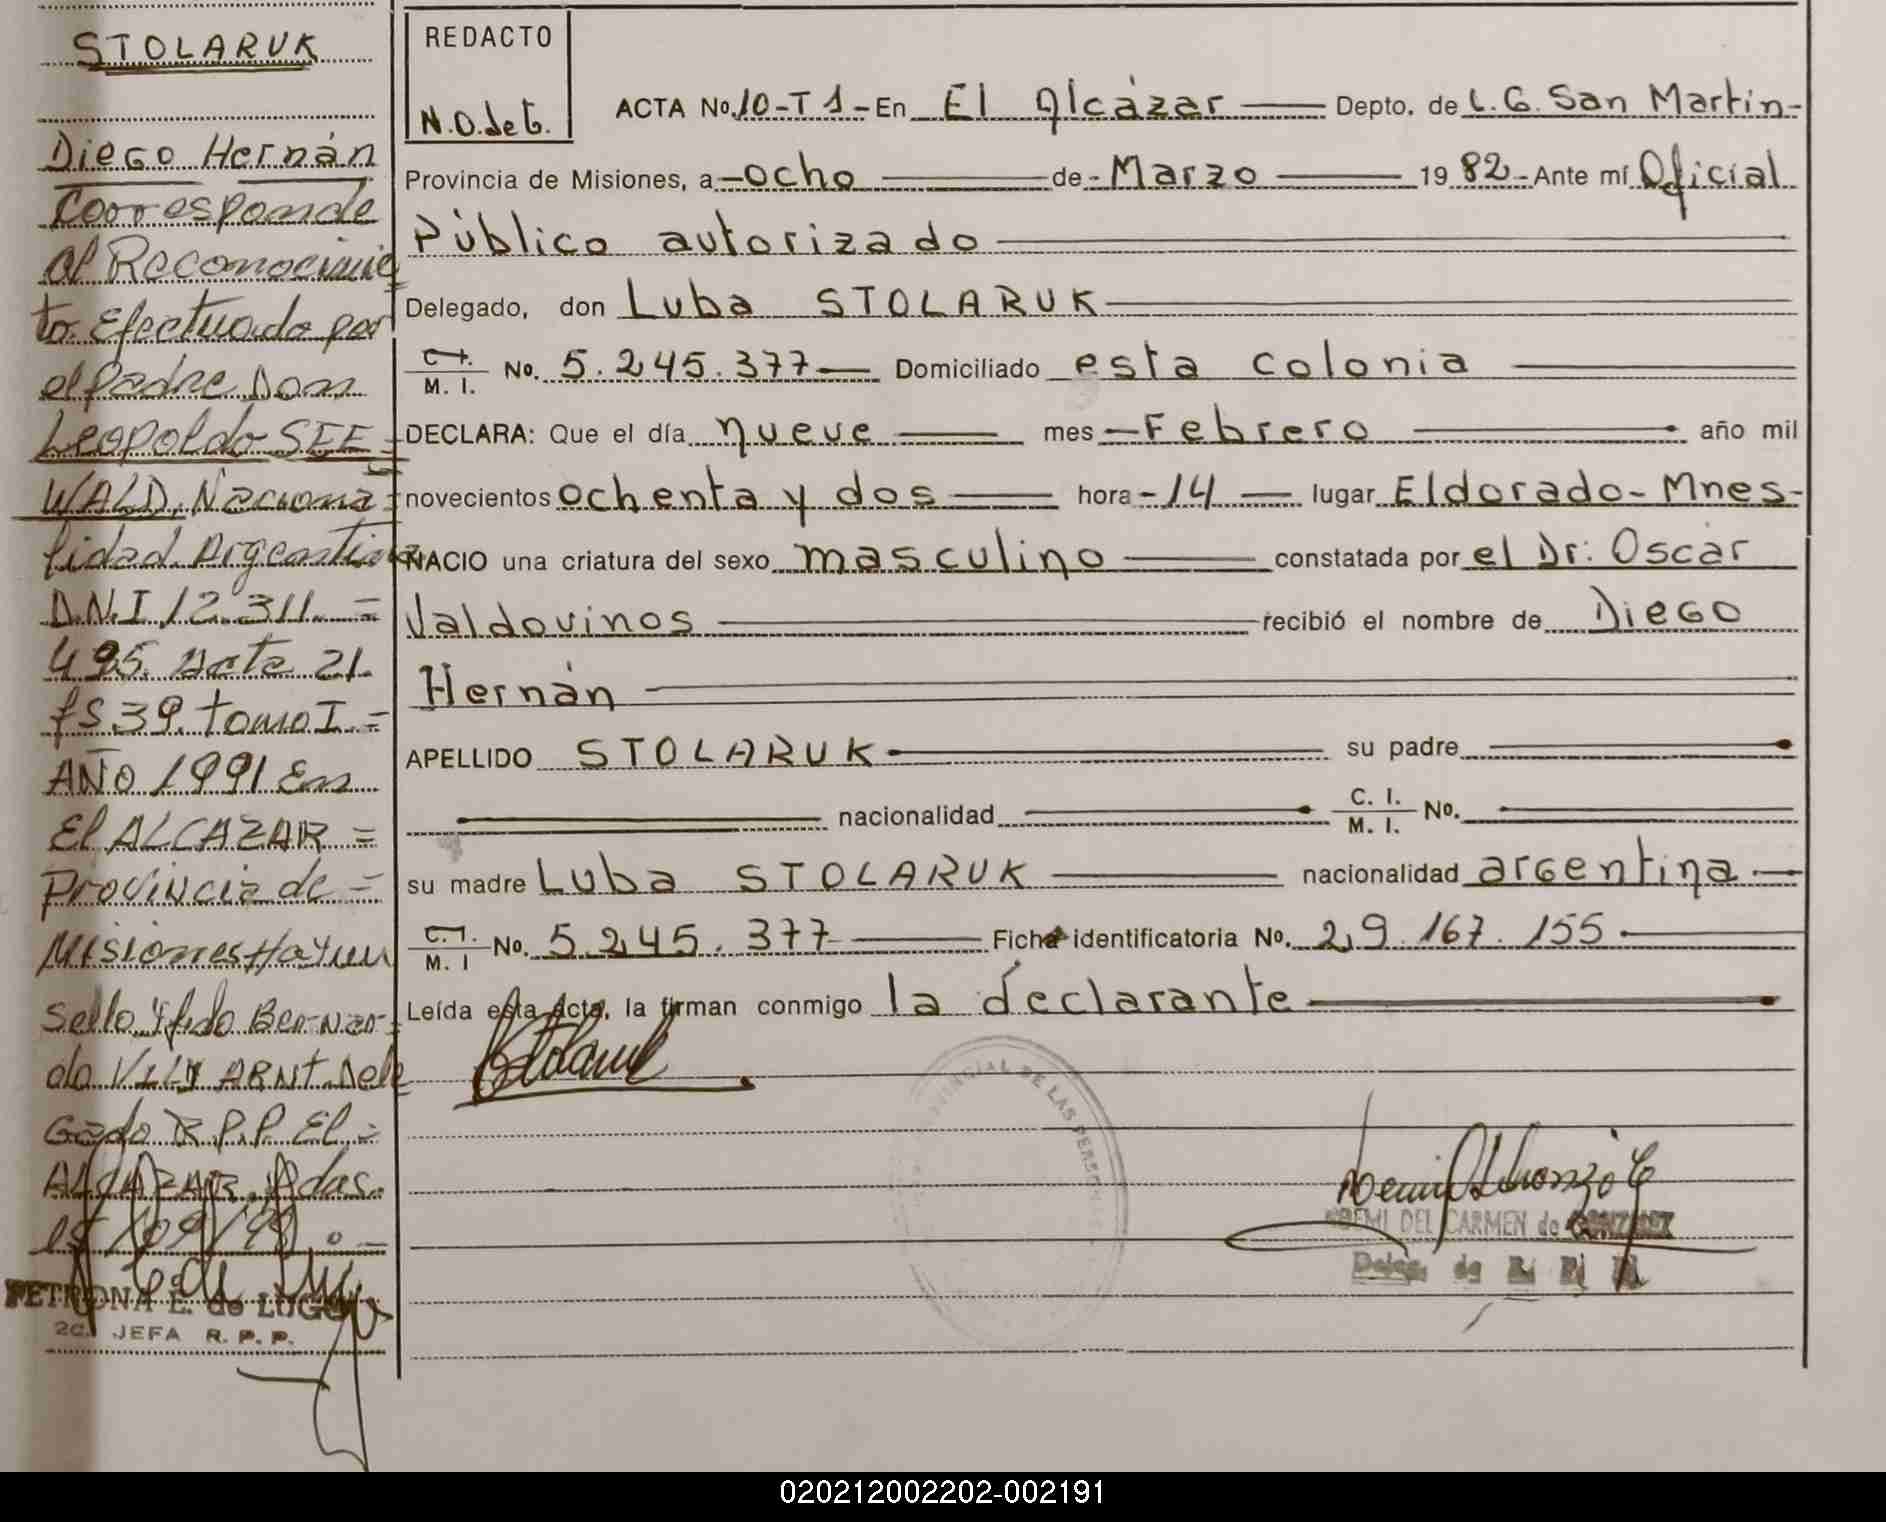 STOLARUK
Diego Hernán
Corresponde
al Reconocimie
to Efectuado por
el padre Don
Leopoldo SEE=
WALD, Naciona=
lidad Argentina
D.N.I 12.311.=
495. Acta 21.
fs 39. tomo I.=
AÑO 1991 En
El ALCAZAR=
Provincia de=
Misiones Hay un
Sello y fdo Bernar=
do VILY ARNT. Dele
Gado R.P.P. El=
ALCAZAR. Pdas.
PETRONA E. de LUGO
2a. JEFA R. P. P.
REDACTO
N.O.de G.
ACTA No. 10-T 1-En El Alcázar Depto. de L.G. San Martin-
Provincia de Misiones, a -ocho de- Marzo 1982-Ante mí Oficial
Público autorizado
Delegado, don Luba STOLARUK
C. I.
M. I. No. 5.245.377 Domiciliado esta colonia
DECLARA: Que el día nueve mes -Febrero año mil
novecientos ochenta y dos hora -14 lugar Eldorado- Mnes-
NACIO una criatura del sexo masculino constatada por el Dr: Oscar
Valdovinos recibió el nombre de Diego
Hernán
APELLIDO STOLARUK su padre
nacionalidad C. I.
M. I. No.
su madre Luba STOLARUK nacionalidad argentina
C. I.
M. I No. 5.245.377 Ficha identificatoria No. 29.167.155
Leída esta Acta, la firman conmigo la declarante
PROVINCIAL DE LAS PERSON
NOEMI DEL CARMEN de GONZALEZ
Deleg. de R. P. P.
020212002202-002191